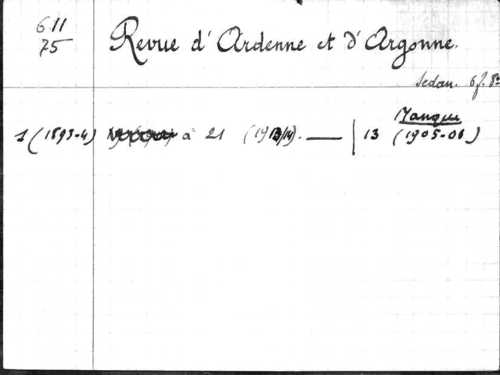 611
75
Revue d'Ardenne et d'Argonne.
Sedan. 6 f. 8º
Manque
1 (1893-4) à 21 (1913/14). — | 13 (1905-06)